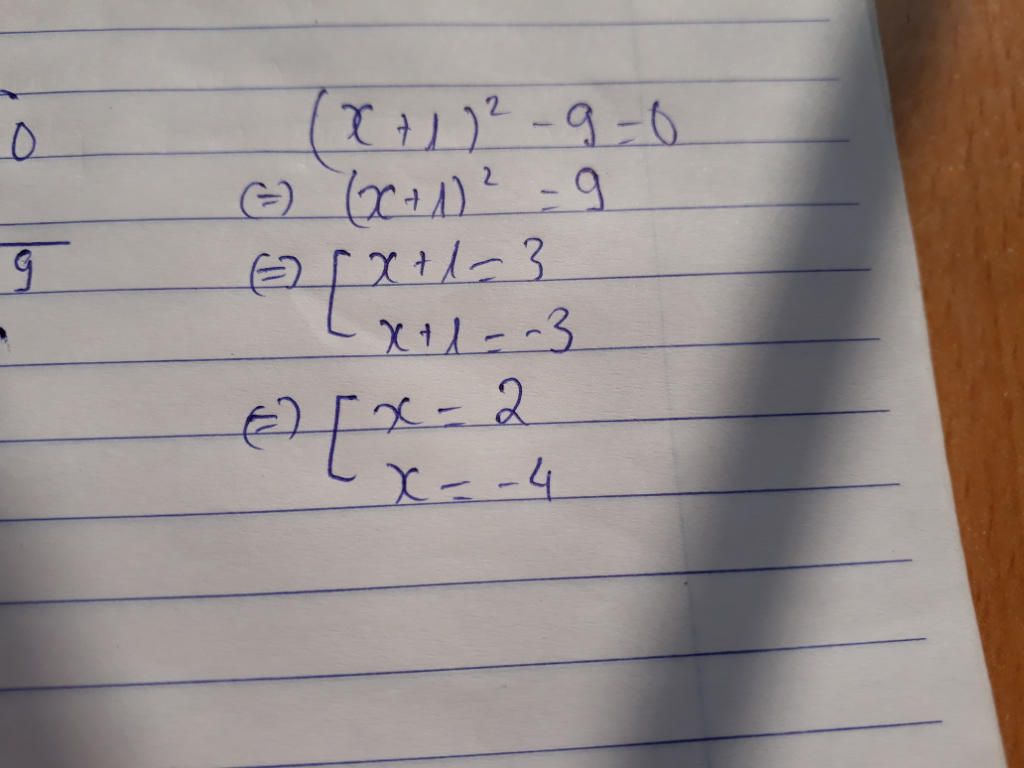 0
(x+1)² - 9 = 0
(=) (x+1)² = 9
9
(=) [ x+1 = 3
x+1 = -3
(=) [ x = 2
x = -4